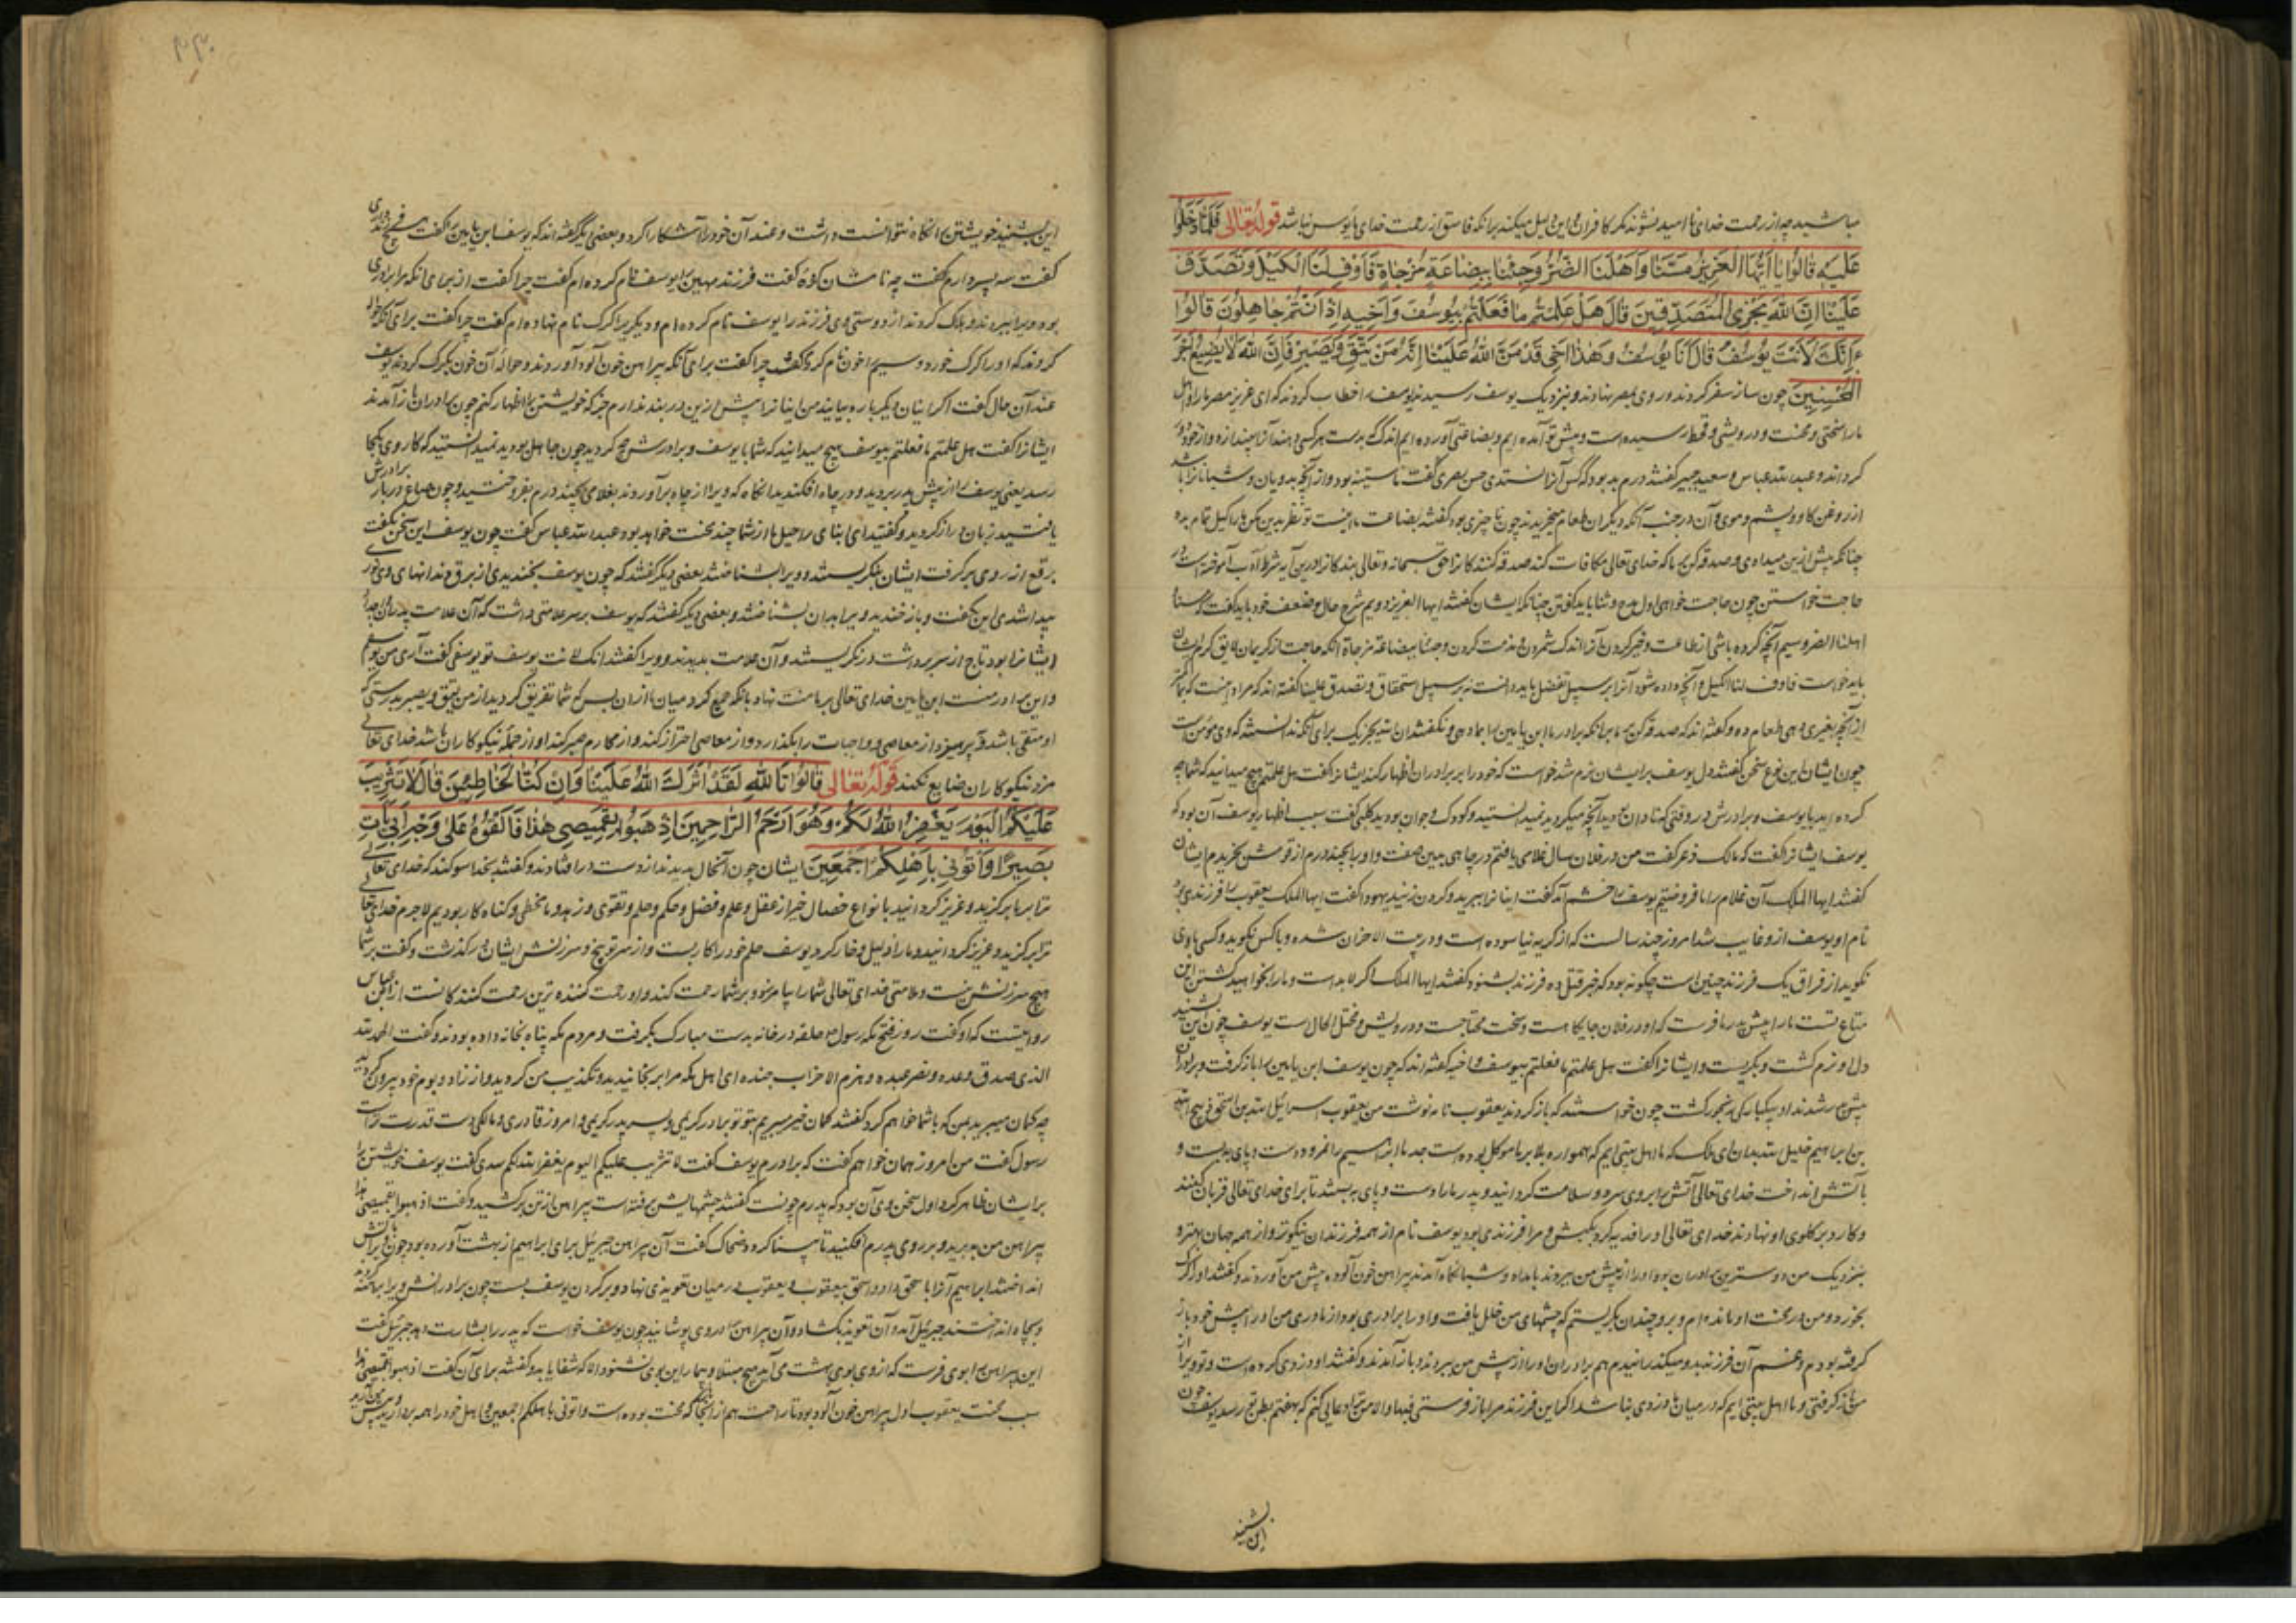 مباشید چه از رحمت خدای نا امید نشوند مگر کافران و این دلیل میکند برانکه فاسق از رحمت خدای مایوس نباشد قوله تعالی فلما دخلوا
علیه قالوا یا ایها العزیز مسنا و اهلنا الضر و جئنا ببضاعة مزجاة فاوف لنا الکیل و تصدق
علینا ان الله یجزی المتصدقین قال هل علمتم ما فعلتم بیوسف و اخیه اذ انتم جاهلون قالوا
ءانک لانت یوسف قال انا یوسف و هذا اخی قد من الله علینا انه من یتق و یصبر فان الله لا یضیع اجر
المحسنین چون ساز سفر کردند و روی بمصر نهادند و بنزدیک یوسف رسیدند یوسف را خطاب کردند که ای عزیز مصر ما را و اهل
ما را سختی و محنت و درویشی و قحط رسیده است و پیش تو آمده ایم و بضاعتی آورده ایم اندک
کرداند و عبدالله عباس و سعید جبیر گفتند درم بد بود که کس آنرا نستدی حسن بصری گفت
از روغن کاو و پشم و موی و آن در جنب آنکه دیگران طعام میخریدند چون ناچیزی بود گفتند بضاعت ما اینست تو نظر بدین مکن ما را کیل تمام بده
چنانکه پیش ازین میدادی و صدقه کن بر ما که خدای تعالی مکافات کند صدقه کنندکانرا حق سبحانه و تعالی بندکانرا درین آیه شرط ادب آموخته است
حاجت خواستن چون حاجت خواهی اول مدح و ثنا باید گفتن چنانکه ایشان گفتند ایها العزیز دویم شرح حال و ضعف خود باید گفت که مسنا
و اهلنا الضر و سیم آنچه کرده باشی از طاعت و خیر کردن آنرا اندک شمردن و مذمت کردن و جئنا ببضاعة مزجاة آنکه حاجت از کریمان لایق کرم ایشان
باید خواست فاوف لنا الکیل و آنچه داده شود آنرا بر سبیل تفضل باید دانست نه بر سبیل استحقاق و تصدق علینا گفته اند که مراد اینست که بما
از آنچه بغیری دهی طعام ده و گفته اند که صدقه کن بر ما بدانکه برادر ما ابن یامین را بما دهی و نگفتند ان الله یجزیک برای آنکه ندانستند که وی مومن است
چون ایشان این نوع سخن گفتند دل یوسف بر ایشان نرم شد خواست که خود را بر برادران اظهار کند ایشانرا گفت هل علمتم هیچ میدانید که شما چه
کرده اید با یوسف و برادرش در وقتی که نادان بودید آنچه میکردید نمیدانستید و کودک و جوان بودید کلبی گفت سبب اظهار یوسف آن بود که
یوسف ایشانرا گفت که مالک ذعر گفت من در فلان سال غلامی یافتم در چاهی بدین صفت و او را بچند درم از قومش بخریدم ایشان
گفتند ایها الملک آن غلام را ما فروختیم یوسف را خشم آمد گفت اینانرا ببرید و گردن زنید یهودا گفت ایها الملک یعقوب را فرزندی بود
نام او یوسف ازو غایب شد امروز چند سالست که از گریه نیاسوده است و در بیت الاحزان شده و با کس نگوید و کسی با وی
نگوید از فراق یک فرزند چنین است چگونه بود که خبر قتل ده فرزند بشنود گفتند ایها الملک اگر لابد است و ما را بخواهید کشتن این
متاع تست ما را پیش پدر ما فرست که او در فلان جایگاه است و سخت محتاجست و درویش و مختل الحال است یوسف چون این بشنید
دل او نرم گشت و بگریست و ایشانرا گفت هل علمتم ما فعلتم بیوسف و اخیه گفته اند که چون یوسف ابن یامین را باز گرفت و برادران
پیش پدر شدند او بیکبارگی رنجور گشت چون خواستند که باز گردند یعقوب نامه نوشت من یعقوب اسرائیل الله بن اسحق ذبیح الله
بن ابراهیم خلیل الله بدان ای ملک که ما اهل بیتی ایم که همواره بلا بر ما موکل بوده است جد ما ابراهیم را نمرود دست و پای ببست و
بآتش انداخت خدای تعالی آتش را بر وی سرد و سلامت گردانید و پدر ما را دست و پای ببستند تا برای خدای تعالی قربان کنند
و کارد بر گلوی او نهادند خدای تعالی او را فدیه کرد بکبش و مرا فرزندی بود یوسف نام از همه فرزندان نیکوتر و از همه جهان بهتر و
بنزدیک من دوسترین برادران بود او را از پیش من ببردند بامداد و شبانگاه آمدند پیراهن خون آلوده پیش من آوردند و گفتند او را گرگ
بخورد و من در محنت او مانده ام و برو چندان بگریستم که چشمهای من خلل یافت و او را برادری بود از مادری من او را پیش خود باز
گرفته بودم و غم آن فرزند بدو میگذرانیدم هم برادران او را از پیش من ببردند و باز آمدند و گفتند او دزدی کرده است و تو ویرا
باز گرفتی و ما اهل بیتی ایم که در میان ما دزدی نباشد اگر این فرزند مرا باز فرستی فبها و الا من ترا دعایی کنم که بهفتم بطن تو رسد یوسف چون
این بشنید
این بشنید خویشتن را نگاه نتوانست داشت و عند آن خود را آشکارا کرد و بعضی دیگر گفته اند که یوسف ابن یامین را گفت هیچ فرزند داری
گفت سه پسر دارم گفت چه نامشان کرده گفت فرزند مهین را یوسف نام کرده ام گفت چرا گفت از برای آنکه مرا برادری
بود ویرا ببردند و هلاک کردند از دوستی وی فرزند را یوسف نام کرده ام و دیگری را گرگ نام نهاده ام گفت چرا گفت برای آنکه حواله
کردند که او را گرگ خورد و سیم را خون نام کردم گفت چرا گفت برای آنکه پیراهن خون آلود آوردند و حواله آن خون بگرگ کردند یوسف
عند آن حال گفت اگر اینان دیگر باره بیایند من اینانرا پیش ازین در بند ندارم جز که خویشتن را اظهار کنم چون برادران باز آمدند
ایشانرا گفت هل علمتم ما فعلتم بیوسف هیچ میدانید که شما با یوسف و برادرش چه کردید چون جاهل بودید نمیدانستید که کار وی بکجا
رسد یعنی یوسف را از پیش پدر ببردید و در چاه افکندید آنگاه که ویرا از چاه برآوردند بغلامی بچند درم بفروختید و چون صاع در بار برادرش
یافتید زبان دراز کردید و گفتید ای ابنای راحیل ما را از شما چند محنت خواهد بود عبدالله عباس گفت چون یوسف این سخن بگفت
برقع از روی برگرفت ایشان بنگریستند و ویرا بشناختند بعضی دیگر گفتند که چون یوسف بخندیدی از برق دندانهای وی نور
پیدا شدی این بگفت و باز خندید ویرا بدان بشناختند و بعضی دیگر گفتند که یوسف بر سر علامتی داشت که آن علامت پدر و جد
ایشانرا بود تاج از سر برداشت درنگریستند و آن علامت بدیدند و ویرا گفتند انک لانت یوسف تو یوسفی گفت آری من یوسفم
و این برادر منست ابن یامین خدای تعالی بر ما منت نهاد بانکه جمع کرد میان ما از آن پس که شما تفریق کردید انه من یتق و یصبر بدرستی که
او متقی باشد و بپرهیزد از معاصی و واجبات را بگذارد و از معاصی احتراز کند و از محارم صبر کند او از جمله نیکوکاران باشد خدای تعالی
مزد نیکوکاران ضایع نکند قوله تعالی قالوا تالله لقد اثرک الله علینا و ان کنا لخاطئین قال لا تثریب
علیکم الیوم یغفر الله لکم و هو ارحم الراحمین اذهبوا بقمیصی هذا فالقوه علی وجه ابی یات
بصیرا و اتونی باهلکم اجمعین ایشان چون آنحال بدیدند از دست درافتادند و گفتند بخدا سوگند که خدای تعالی
ترا بر ما برگزید و عزیز گردانید بانواع خصال خیر از عقل و علم و فضل و حکم و حلم و تقوی و زهد و ما مخطی و گناه کار بودیم لاجرم خدای تعالی
ترا برگزید و عزیز گردانید و ما را ذلیل و خار کرد یوسف حلم خود را کار بست و از سر توبیخ و سرزنش ایشان درگذشت و گفت بر شما
هیچ سرزنش نیست و ملامتی خدای تعالی شما را بیامرزد و بر شما رحمت کند و او رحمت کننده ترین رحمت کنندکانست از ابن عباس
روایتست که او گفت روز فتح مکه رسول حلقه در خانه بدست مبارک بگرفت و مردم مکه پناه بخانه داده بودند و گفت الحمد لله
الذی صدق وعده و نصر عبده و هزم الاحزاب جنده ای اهل مکه مرا برنجانیدید و تکذیب من کردید و از زاد و بوم خود بیرون کردید
چه گمان میبرید بمن که با شما خواهم کرد گفتند گمان خیر میبریم بتو تو برادر کریمی و پسر پدر کریمی و امروز قادری و مالکی و دست قدرت تراست
رسول گفت من امروز همان خواهم گفت که برادرم یوسف گفت لا تثریب علیکم الیوم یغفر الله لکم سدی گفت یوسف خویشتن را
بر ایشان ظاهر کرد اول سخن وی آن بود که پدرم چونست گفتند چشمهایش برفته است پیراهن از تن برکشید و گفت اذهبوا بقمیصی هذا
پیراهن من ببرید و بر روی پدرم افکنید تا بینا گردد ضحاک گفت آن پیراهن جبرئیل برای ابراهیم از بهشت آورده بود چون ویرا بآتش
انداختند ابراهیم آنرا باسحق داد و اسحق بیعقوب و یعقوب در میان تعویذی نهاد و بر گردن یوسف بست چون برادرانش ویرا برهنه کردند
و بچاه انداختند جبرئیل آمد و آن تعویذ بگشاد و آن پیراهن در وی پوشانید چون یوسف خواست که پدر را بشارت دهد جبرئیل گفت
این پیراهن را بوی فرست که از وی بوی بهشت می آید هیچ مبتلا و بیمار این بوی نشنود الا که شفا یابد و گفتند برای آن گفت اذهبوا بقمیصی هذا
سبب محنت یعقوب اول پیراهن خون آلود بود تا راحت هم از آنجا که محنت بوده است و اتونی باهلکم اجمعین و اهل خود را همه بردارید و پیش من آرید